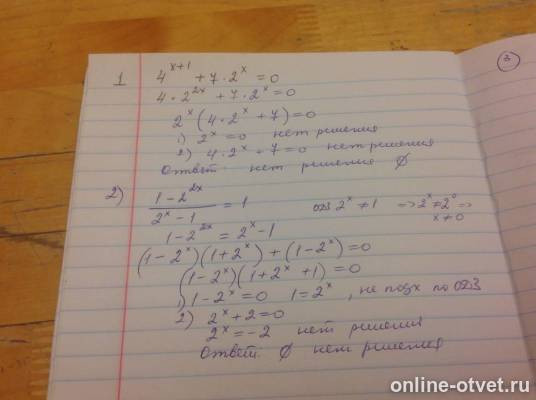 1 4^{x+1} + 7 · 2^x = 0
4 · 2^{2x} + 7 · 2^x = 0
2^x (4 · 2^x + 7) = 0
1) 2^x = 0 нет решения
2) 4 · 2^x + 7 = 0 нет решения
Ответ: нет решения ∅
2) \frac{1 - 2^{2x}}{2^x - 1} = 1 ОДЗ 2^x ≠ 1 => 2^x ≠ 2^0 =>
x ≠ 0
1 - 2^{2x} = 2^x - 1
(1 - 2^x)(1 + 2^x) + (1 - 2^x) = 0
(1 - 2^x)(1 + 2^x + 1) = 0
1) 1 - 2^x = 0 1 = 2^x, не подх по ОДЗ
2) 2^x + 2 = 0
2^x = -2 нет решения
Ответ: ∅ нет решения
3
online-otvet.ru